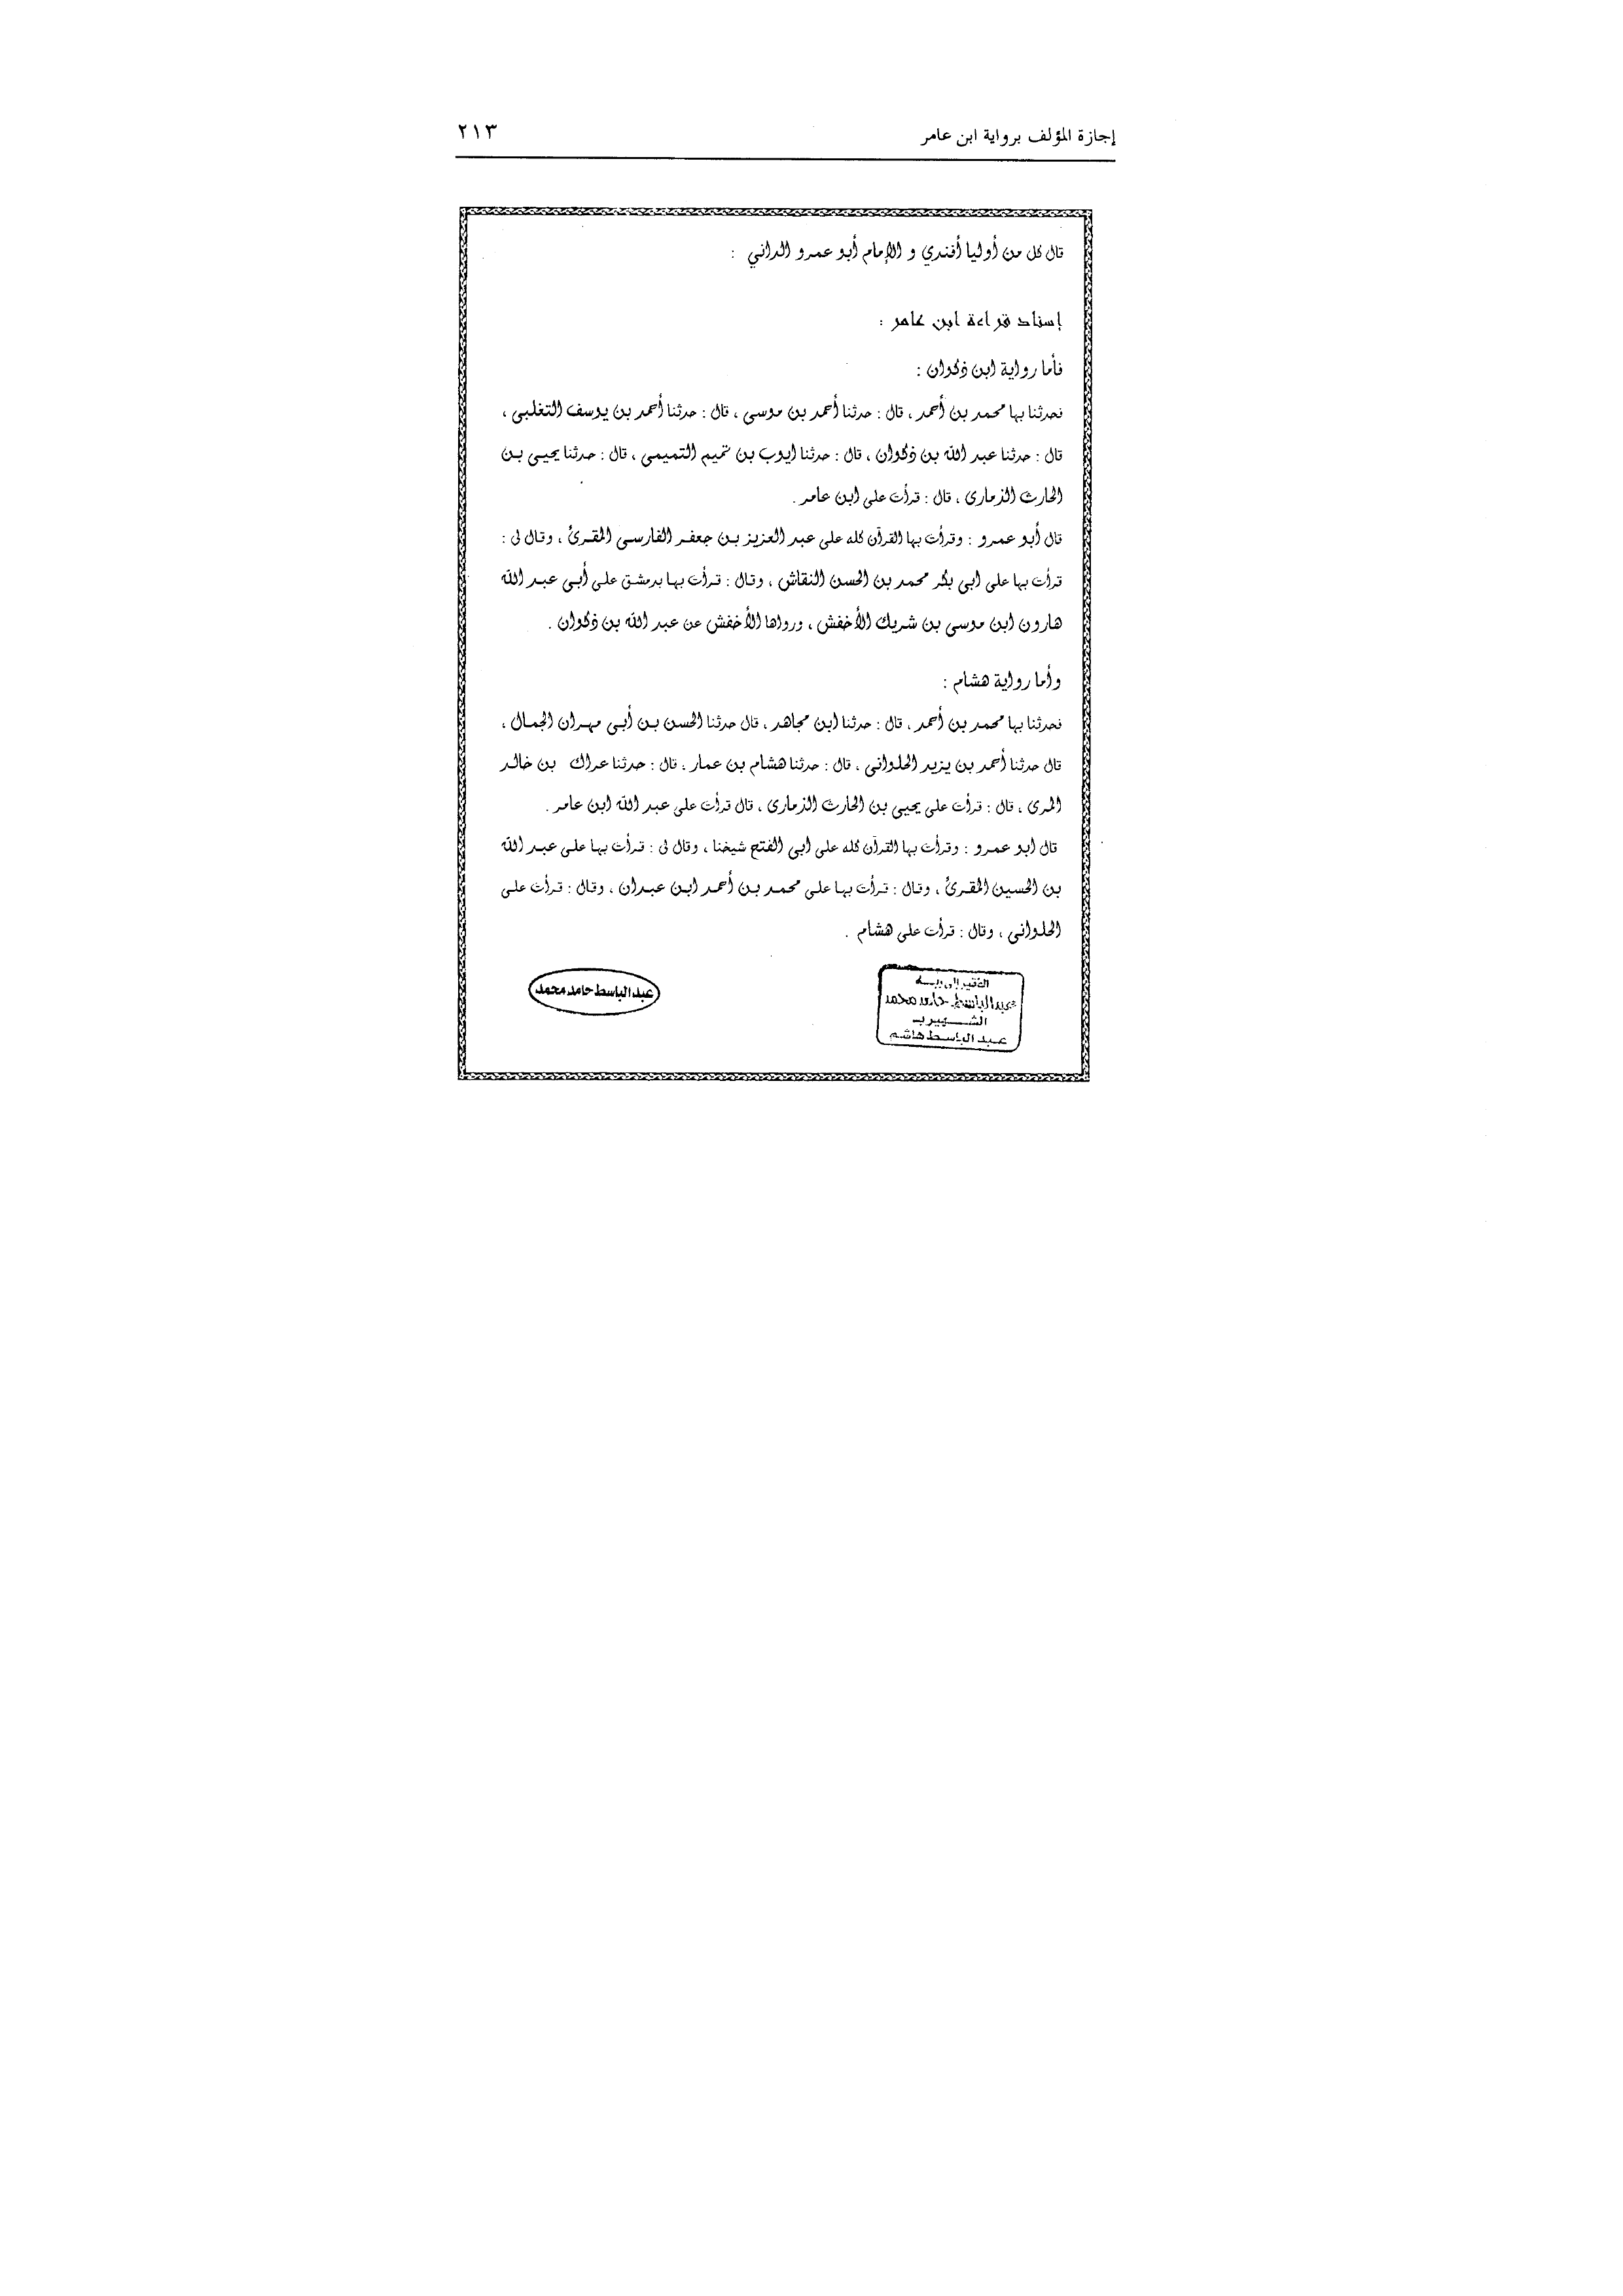 إجازة المؤلف برواية ابن عامر ٢١٣
قال كل من أوليا أفندي و الإمام أبو عمرو الداني :
إسناد قراءة ابن عامر :
فأما رواية ابن ذكوان :
فحدثنا بها محمد بن أحمد ، قال : حدثنا أحمد بن موسى ، قال : حدثنا أحمد بن يوسف التغلبي ،
قال : حدثنا عبد الله بن ذكوان ، قال : حدثنا ايوب بن تميم التميمي ، قال : حدثنا يحيى بن
الحارث الذمارى ، قال : قرأت على ابن عامر .
قال أبو عمرو : وقرأت بها القرآن كله على عبد العزيز بن جعفر الفارسى المقرئ ، وقال لى :
قرأت بها على ابى بكر محمد بن الحسن النقاش ، وقال : قرأت بها بدمشق على أبى عبد الله
هارون ابن موسى بن شريك الأخفش ، ورواها الأخفش عن عبد الله بن ذكوان .
وأما رواية هشام :
فحدثنا بها محمد بن أحمد ، قال : حدثنا ابن مجاهد ، قال حدثنا الحسن بن أبى مهران الجمال ،
قال حدثنا أحمد بن يزيد الحلوانى ، قال : حدثنا هشام بن عمار ، قال : حدثنا عراك بن خالد
المرى ، قال : قرأت على يحيى بن الحارث الذمارى ، قال قرأت على عبد الله ابن عامر .
قال ابو عمرو : وقرأت بها القرآن كله على ابى الفتح شيخنا ، وقال لى : قرأت بها على عبد الله
بن الحسين المقرئ ، وقال : قرأت بها على محمد بن أحمد ابن عبدان ، وقال : قرأت على
الحلوانى ، وقال : قرأت على هشام .
الفقير إلى ربه
عبد الباسط حامد محمد
الشهير بـ
عبد الباسط هاشم
عبد الباسط حامد محمد